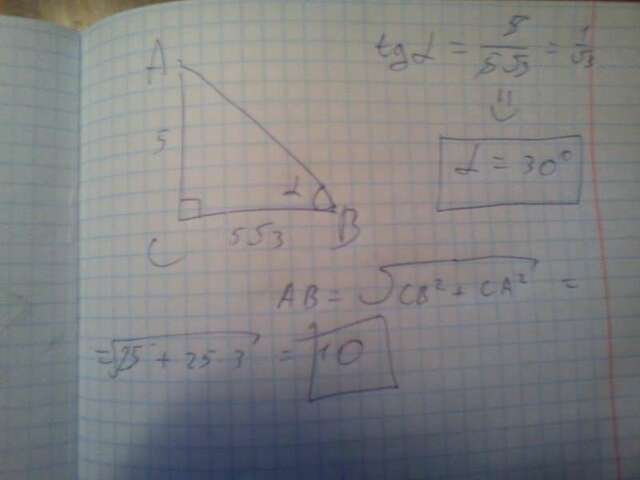 A
5
C
5√3
B
α
tg α = 5/5√3 = 1/√3
⇓
α = 30°
AB = √CB² + CA² =
= √25 + 25·3 = 10